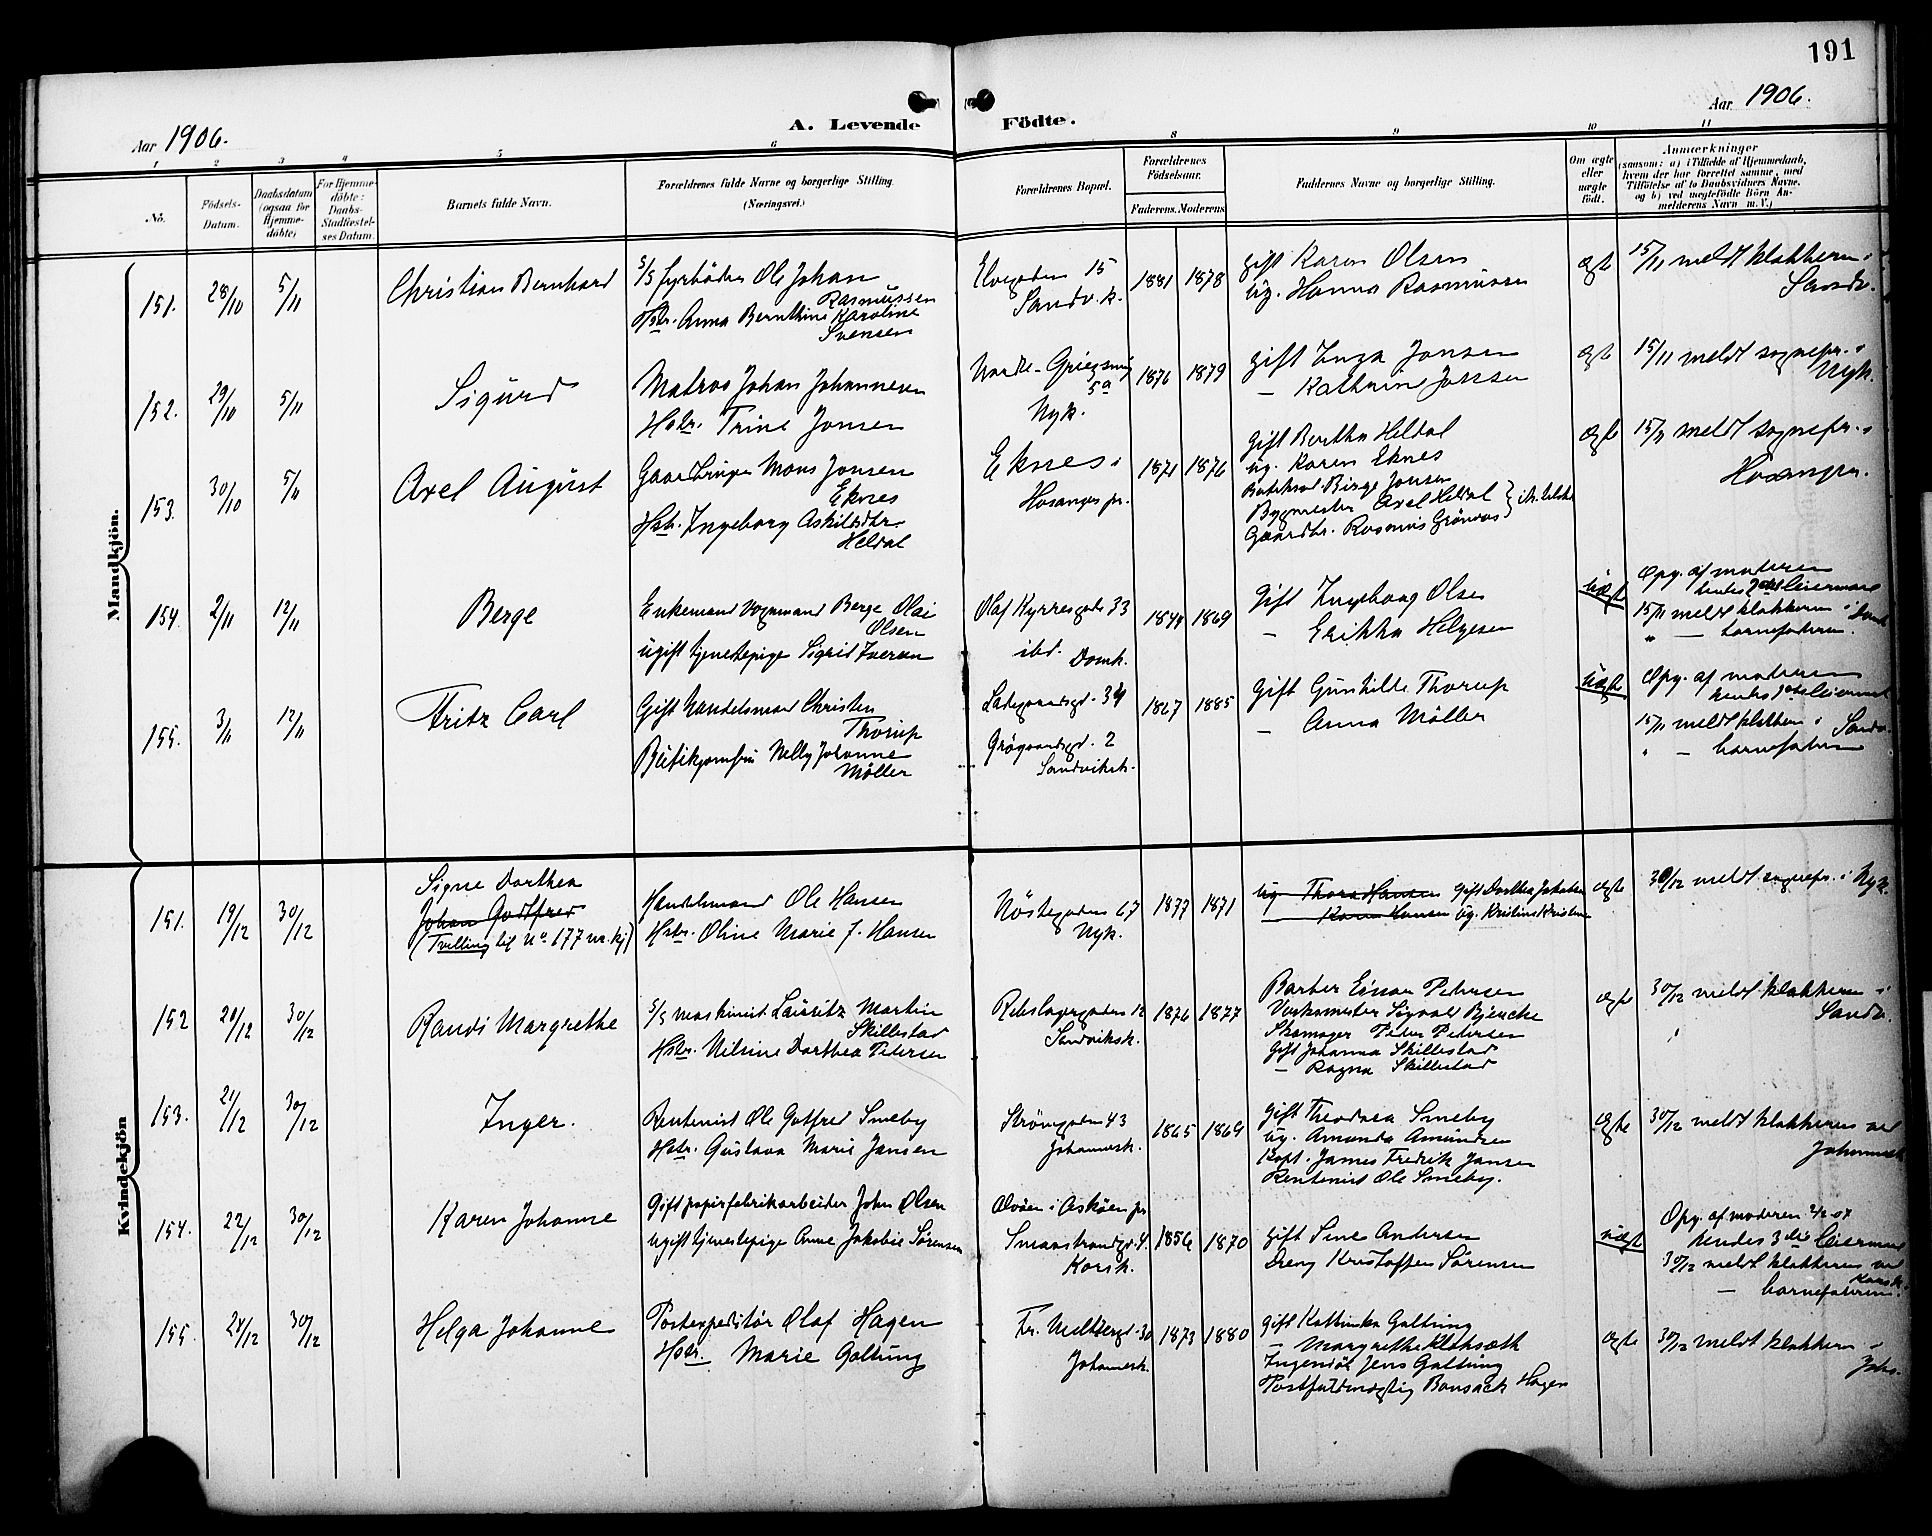 191
Aar 1906.
A. Levende Födte.
Aar 1906.
1 2 3 4 5 6 8 9 10 11
No.
Födsels-Datum.
Daabsdatum (ogsaa for Hjemme-döbte)
For Hjemme-döbte: Daabs-Stadfæstel-ses Datum.
Barnets fulde Navn.
Forældrenes fulde Navne og borgerlige Stilling. (Næringsvei.)
Forældrenes Bopæl.
Forældrenes Födselsaar.
Faderens. Moderens
Faddernes Navne og borgerlige Stilling.
Om ægte eller uægte født.
Anmærkninger
(saasom: a) i Tilfælde af Hjemmedaab,
hvem der har forrettet samme, med
Tilföielse af to Daabsvidners Navne,
og b) ved uegtefödte Börn An-
melderens Navn m. V.)
Mandkjön.
151. 28/10 5/11 Christian Bernhard
S/S fyrböder Ole Johan
Rasmussen
Hstr. Anna Bernthine Karoline
Svensen
Elvegaden 15
Sandv. k.
1881 1878
gift Karen Olsen
ug. Hanna Rasmussen
ægte
15/11 meldt klokkeren i
Sandv.
152. 29/10 5/11 Sigurd
Matros Johan Johannesen
Hstr. Trine Jonsen
5a
Nyk.
1876 1879
gift Inga Jonsen
— Kathrine Jonsen
ægte
15/11 meldt sognepr. i
Nyk.
153. 30/10 5/11 Axel August
Gaardbruger Mons Jonsen
Eknes
Hstr. Ingeborg Askildsdtr.
Heldal
Eknes i
Hosanger pr.
1871 1876
gift Bertha Heldal
ug. Karen Eknes
Birge Jonsen
Bygmester Axel Heldal
Gaardbr. Rasmus Grönaas
ægte
15/11 meldt sognepr. i
Hosanger.
154. 2/11 12/11 Berge
Enkemand Vognmand Berge Olai
Olsen
ugift tjenestepige Sigrid Iversen
Olaf Kyrresgade 33
ibd. Domk.
1844 1869
gift Ingeborg Olsen
— Erikka Helgesen
uægte
Opg. af moderen
hendes 2det leiermaal
15/11 meldt klokkeren i Domk
" — barnefaderen.
155. 3/11 12/11 Fritz Carl
Gift handelsmand Christen
Thorup
Butikjomfru Nelly Johanne
Möller
Ladegaardsgd. 34
2
Sandviksk.
1867 1885
gift Gunhilde Thorup
— Anna Möller
uægte
Opg. af moderen
hendes 1ste leiermaal
15/11 meldt klokkeren i Sandv.
" — barnefaderen
Kvindekjön
151. 19/12 30/12 Signe Dorthea
Johan Godtfred
(Tvilling til No 177 m. kj)
Handelsmand Ole Hansen
Hstr. Oline Marie f. Hansen
Nöstegaden 67
Nyk.
1877 1871
ug Thora Hansen gift Dorthea Jakobsen
Karen Hansen ug. Kristine Kristensen
ægte
30/12 meldt sognepr. i Nyk.
152 20/12 30/12 Randi Margrethe
S/S maskinist Lauritz Martin
Skillestad
Hstr. Nilsine Dorthea Petersen
Rebslagergaden 12
Sandviksk.
1876 1877
Barber Einar Petersen
Verksmester Sigvald Bjercke
Skomager Peter Petersen
gift Johanna Skillestad
— Ragna Skillestad
ægte
30/12 meldt klokkeren i
Sandv.
153. 21/12 30/12 Inger.
Rentenist Ole Gotfred Smeby
Hstr. Gustava Marie Jansen
Strömgaden 43
Johannesk.
1865 1869
gift Theodora Smeby
ug. Amanda Amundsen
Kapt. James Fredrik Jansen
Rentenist Ole Smeby.
ægte
30/12 meldt klokkeren ved
Johannesk
154. 22/12 30/12 Karen Johanne
Gift papirfabrikarbeider John Olsen
ugift tjenestepige Anne Jakobie Sörensen
Alvöen i Asköen pr
Smaastrandgd. 4.
Korsk.
1856 1870
gift Sine Andersen
Dreng Kristoffer Sörensen
uægte
Opg. af moderen 2/2 07
hendes 3die leiermaal
30/12 meldt klokkeren ved
Korsk.
— barnefaderen.
155. 24/12 30/12 Helga Johanne
Postexpeditör Olaf Hagen
Hstr. Marie Galtung
Fr. Meltzersgd. 30
Johannesk.
1873 1880
gift Kathinka Galtung
— Margrethe Kloksæth
Ingeniör Jens Galtung
Postfuldmægtig Bonsach Hagen
ægte
30/12 meldt klokkeren i
Johs.